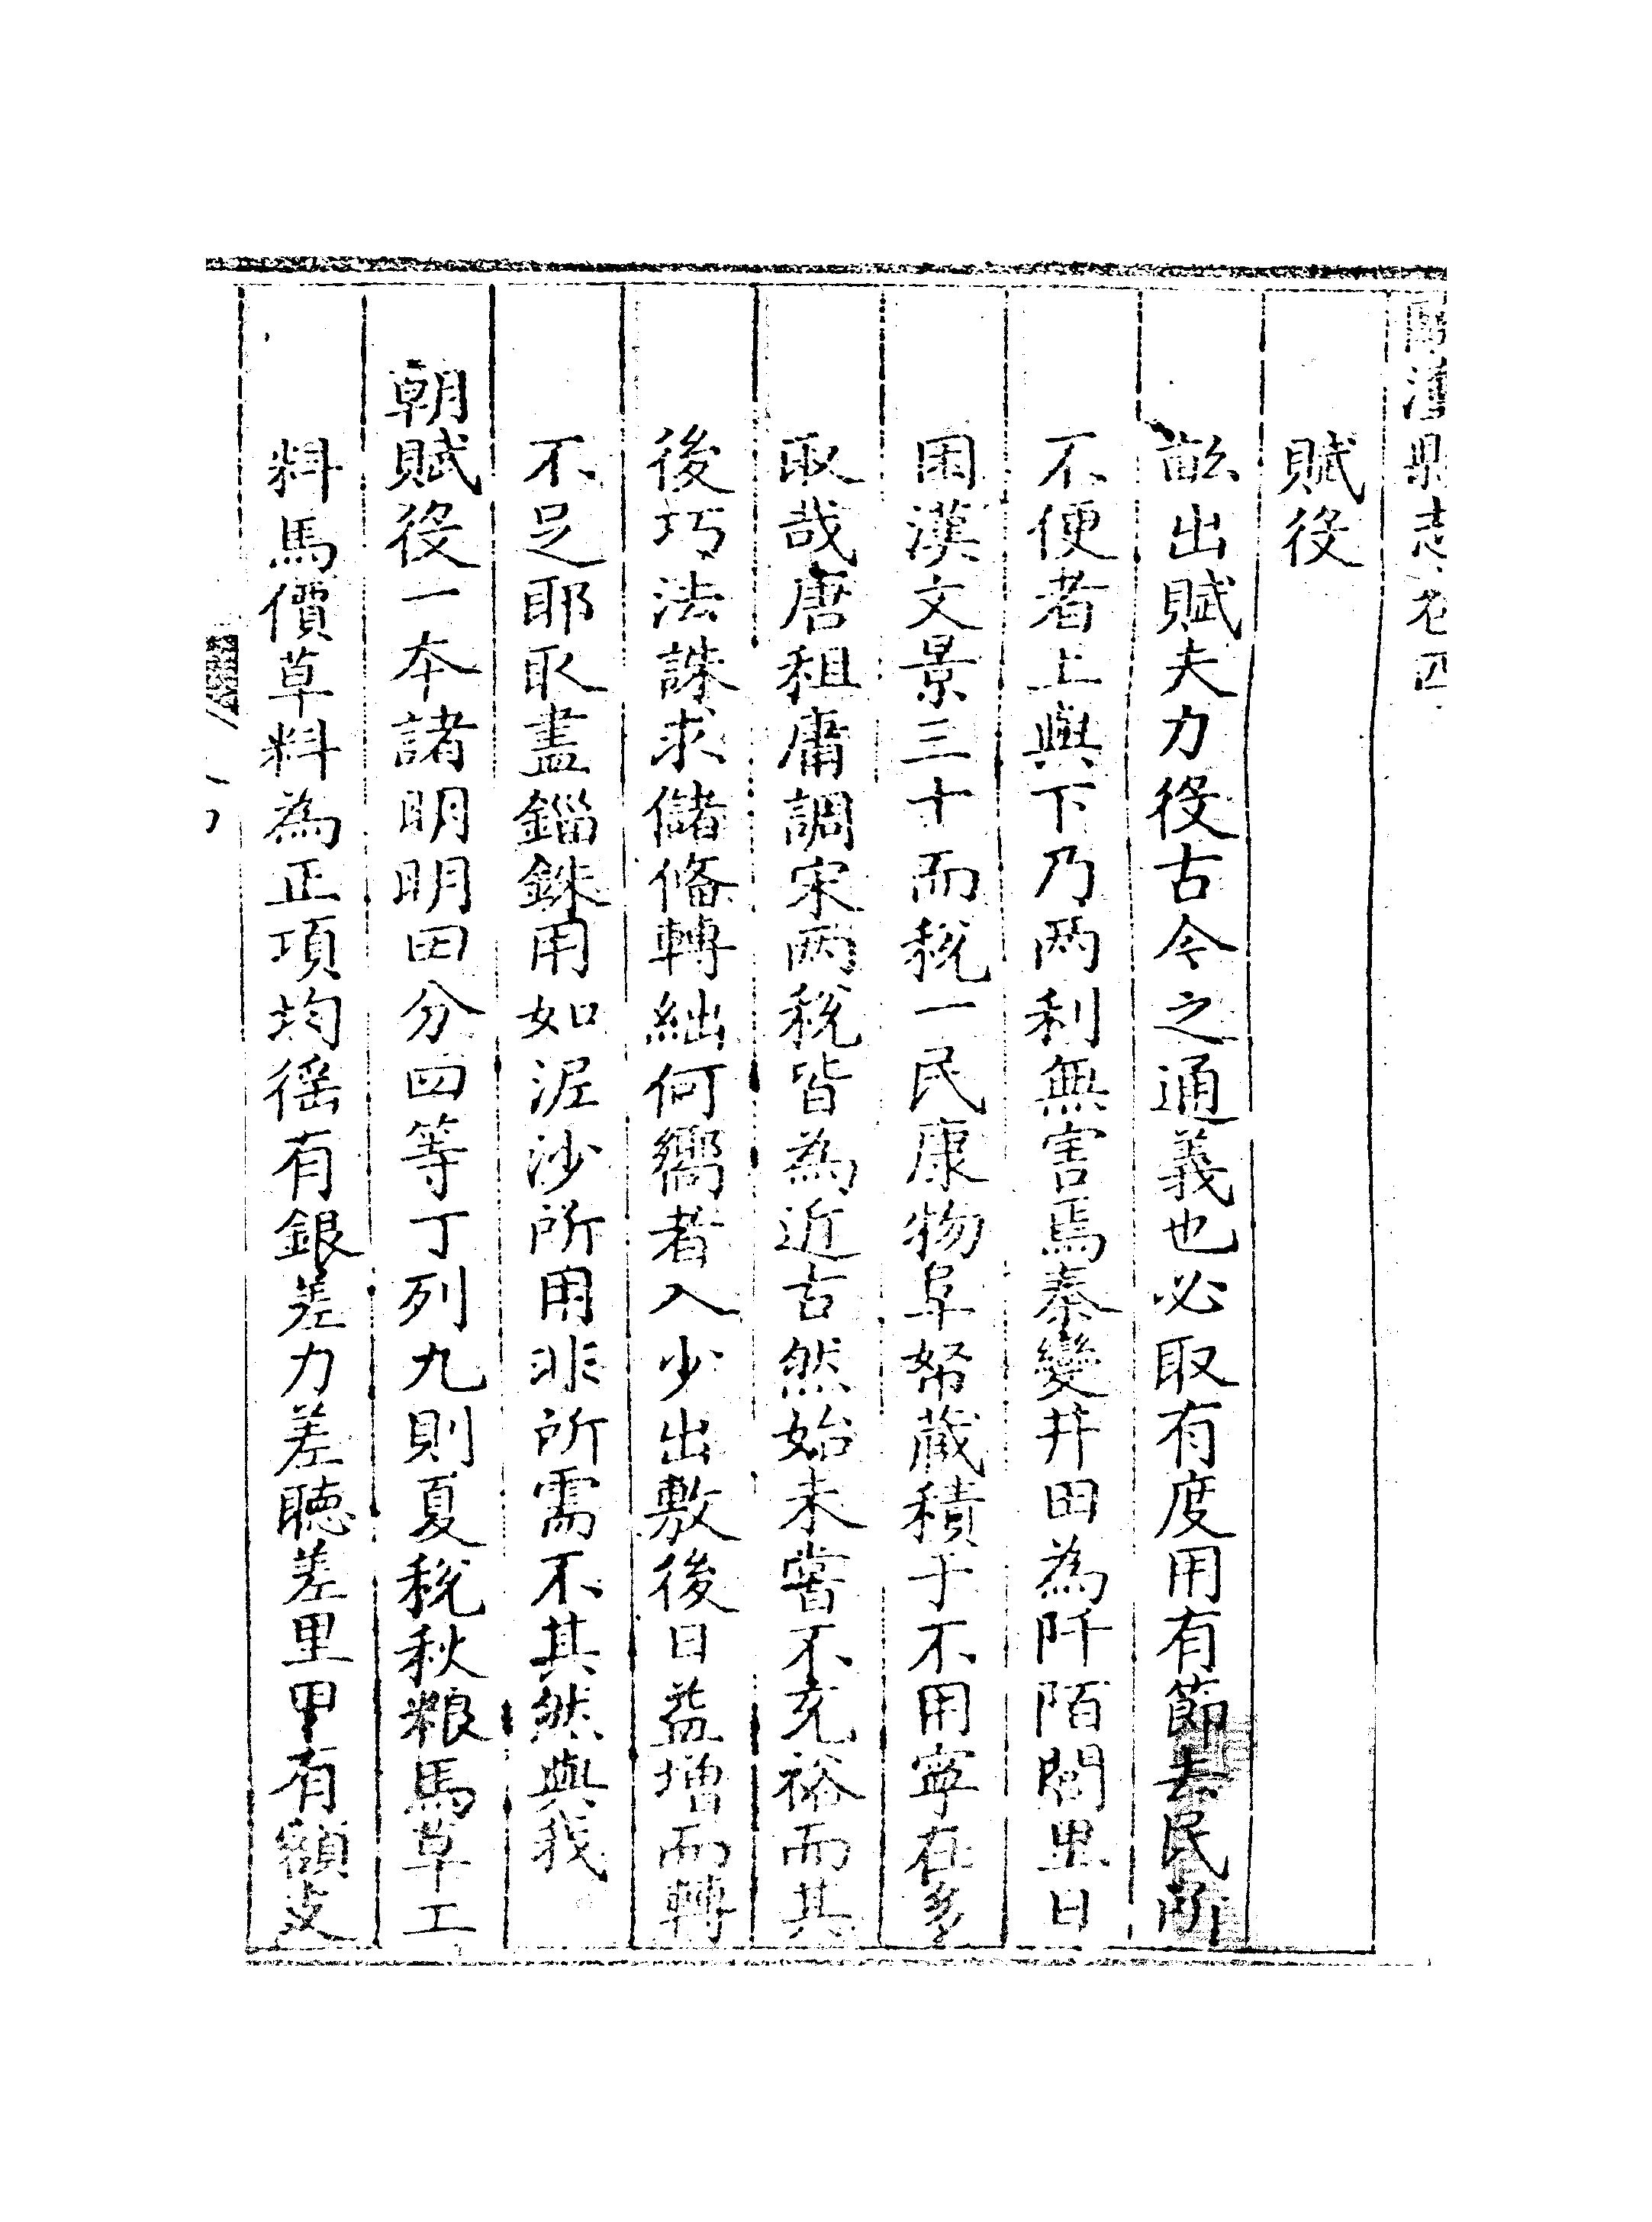 縣志卷四
賦役
畝出賦夫力役古今之通義也必取有度用有節去民所
不便者上與下乃两利無害焉秦變井田為阡陌閭里日
困漢文景三十而税一民康物阜帑蔵積于不用寜在多
取哉唐租庸調宋两税皆為近古然始未嘗不充裕而其
後巧法誅求儲偹轉絀何嚮者入少出敷後日益增而轉
不足耶取盡錙銖用如泥沙所用非所需不其然與我
朝賦役一本諸明明田分四等丁列九則夏税秋粮馬草工
料馬價草料為正項均徭有銀差力差聴差里甲有額支